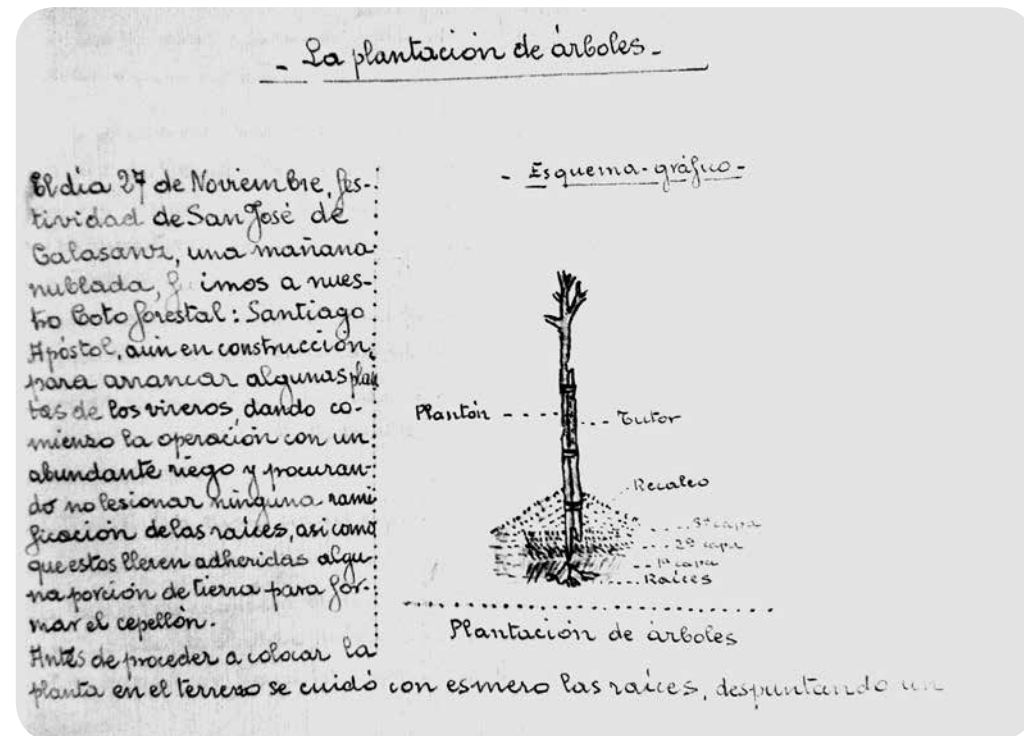 - La plantación de árboles -
El día 27 de Noviembre, fes-
tividad de San José de
Calasanz, una mañana
nublada, fuimos a nues-
tro Coto forestal: Santiago
Apóstol, aún en construcción,
para arrancar algunas plan
tas de los viveros, dando co-
mienzo la operación con un
abundante riego y procuran-
do no lesionar ninguna rami
ficación de las raíces, así como
que estos lleven adheridas algu
na porción de tierra para for-
mar el cepellón.
Antes de proceder a colocar la
planta en el terreno se cuidó con esmero las raíces, despuntando un
- Esquema-gráfico -
Plantón
Tutor
Recalco
3ª capa
2ª capa
1ª capa
Raíces
Plantación de árboles